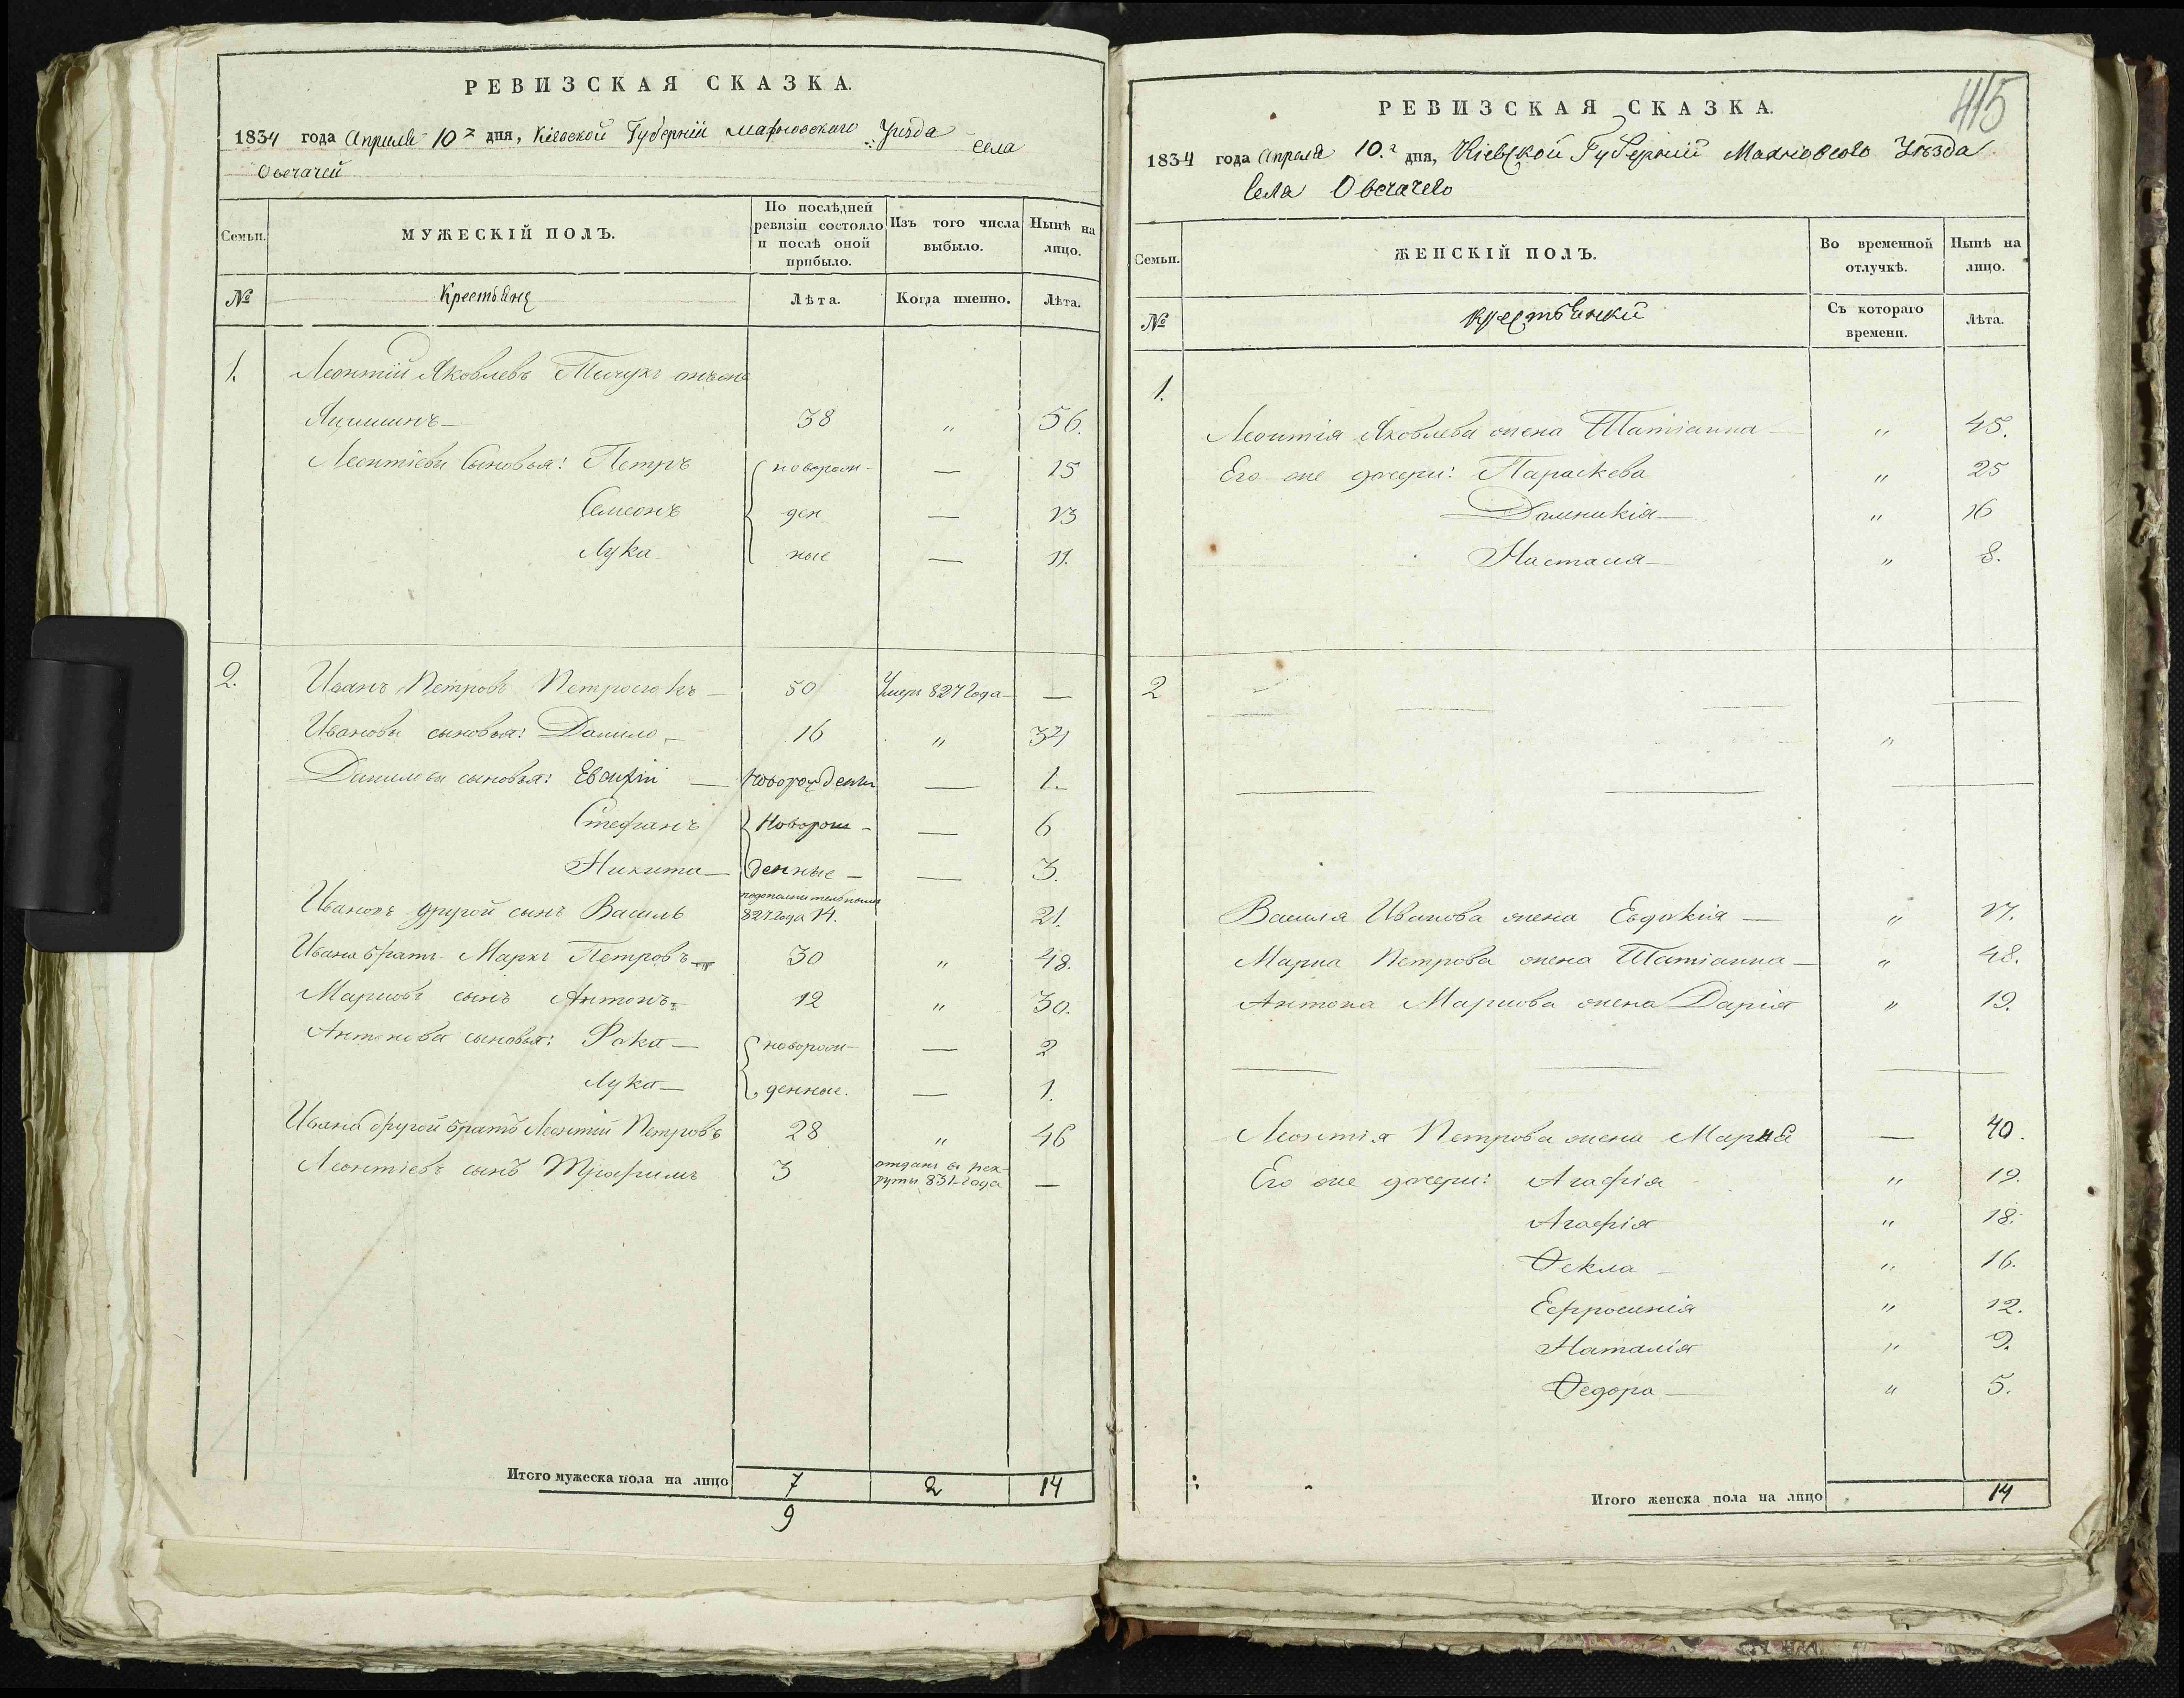 РЕВИЗСКАЯ СКАЗКА.
1834 года Апреля 10г дня, Кіевской Губерніи Махновскаго Уезда села
Овечачей
Семьи.
МУЖЕСКІЙ ПОЛЪ.
По послѣдней ревизіи состояло и послѣ оной прибыло.
Изъ того числа выбыло.
Нынѣ на лицо.
№
Крестьяне
Лѣта.
Когда именно.
Лѣта.
1. Леонтій Яковлевъ онъже
38 „ 56.
Леонтіевы Сыновья: Петръ новорож- — 15
Семеонъ ден — 13
Лука ные — 11.
2. Иванъ Петровъ Петросюкъ — 50 Умеръ 827 года — —
Ивановы сыновья: Данило — 16 „ 34
Даниловы сыновья: — — 1.
Стефанъ Новорож- — 6
Никита — денные — — 3.
Ивановъ другой сынъ Василь 827 года 14. 21.
Ивана братъ Маркъ Петровъ — 30 „ 48.
Марковъ сынъ Антонъ 12 „ 30.
Антоновы сыновья: Фока — новорож- — 2
Лука — денные. — 1.
Ивана другой братъ Леонтій Петровъ 28 „ 46
Леонтіевъ сынъ Трофимъ 3 отданъ въ рек-
руты 831 года —
Итого мужеска пола на лицо 7 2 14
9
415
РЕВИЗСКАЯ СКАЗКА.
1834 года Апреля 10.г дня, Кіевской Губерніи Махновсого Уѣзда
Села Овечачего
Семьи.
ЖЕНСКІЙ ПОЛЪ.
Во временной отлучкѣ.
Нынѣ на лицо.
№
крестьянки
Съ котораго времени.
Лѣта.
1.
Леонтія Яковлева жена Татіанна — „ 45.
Его же дочери: Параскева „ 25
Домникія — „ 16
Настасія — „ 8.
2
„
Василя Иванова жена Евдокія — „ 17.
Марка Петрова жена Татіанна — „ 48.
Антона Маркова жена Дарія „ 19.
Леонтія Петрова жена — 40.
Его же дочери: Агафія „ 19.
Агафія „ 18.
Ѳекла — „ 16.
Ефросинія „ 12.
Наталія „ 9.
Ѳедора — „ 5.
Итого женска пола на лицо 14